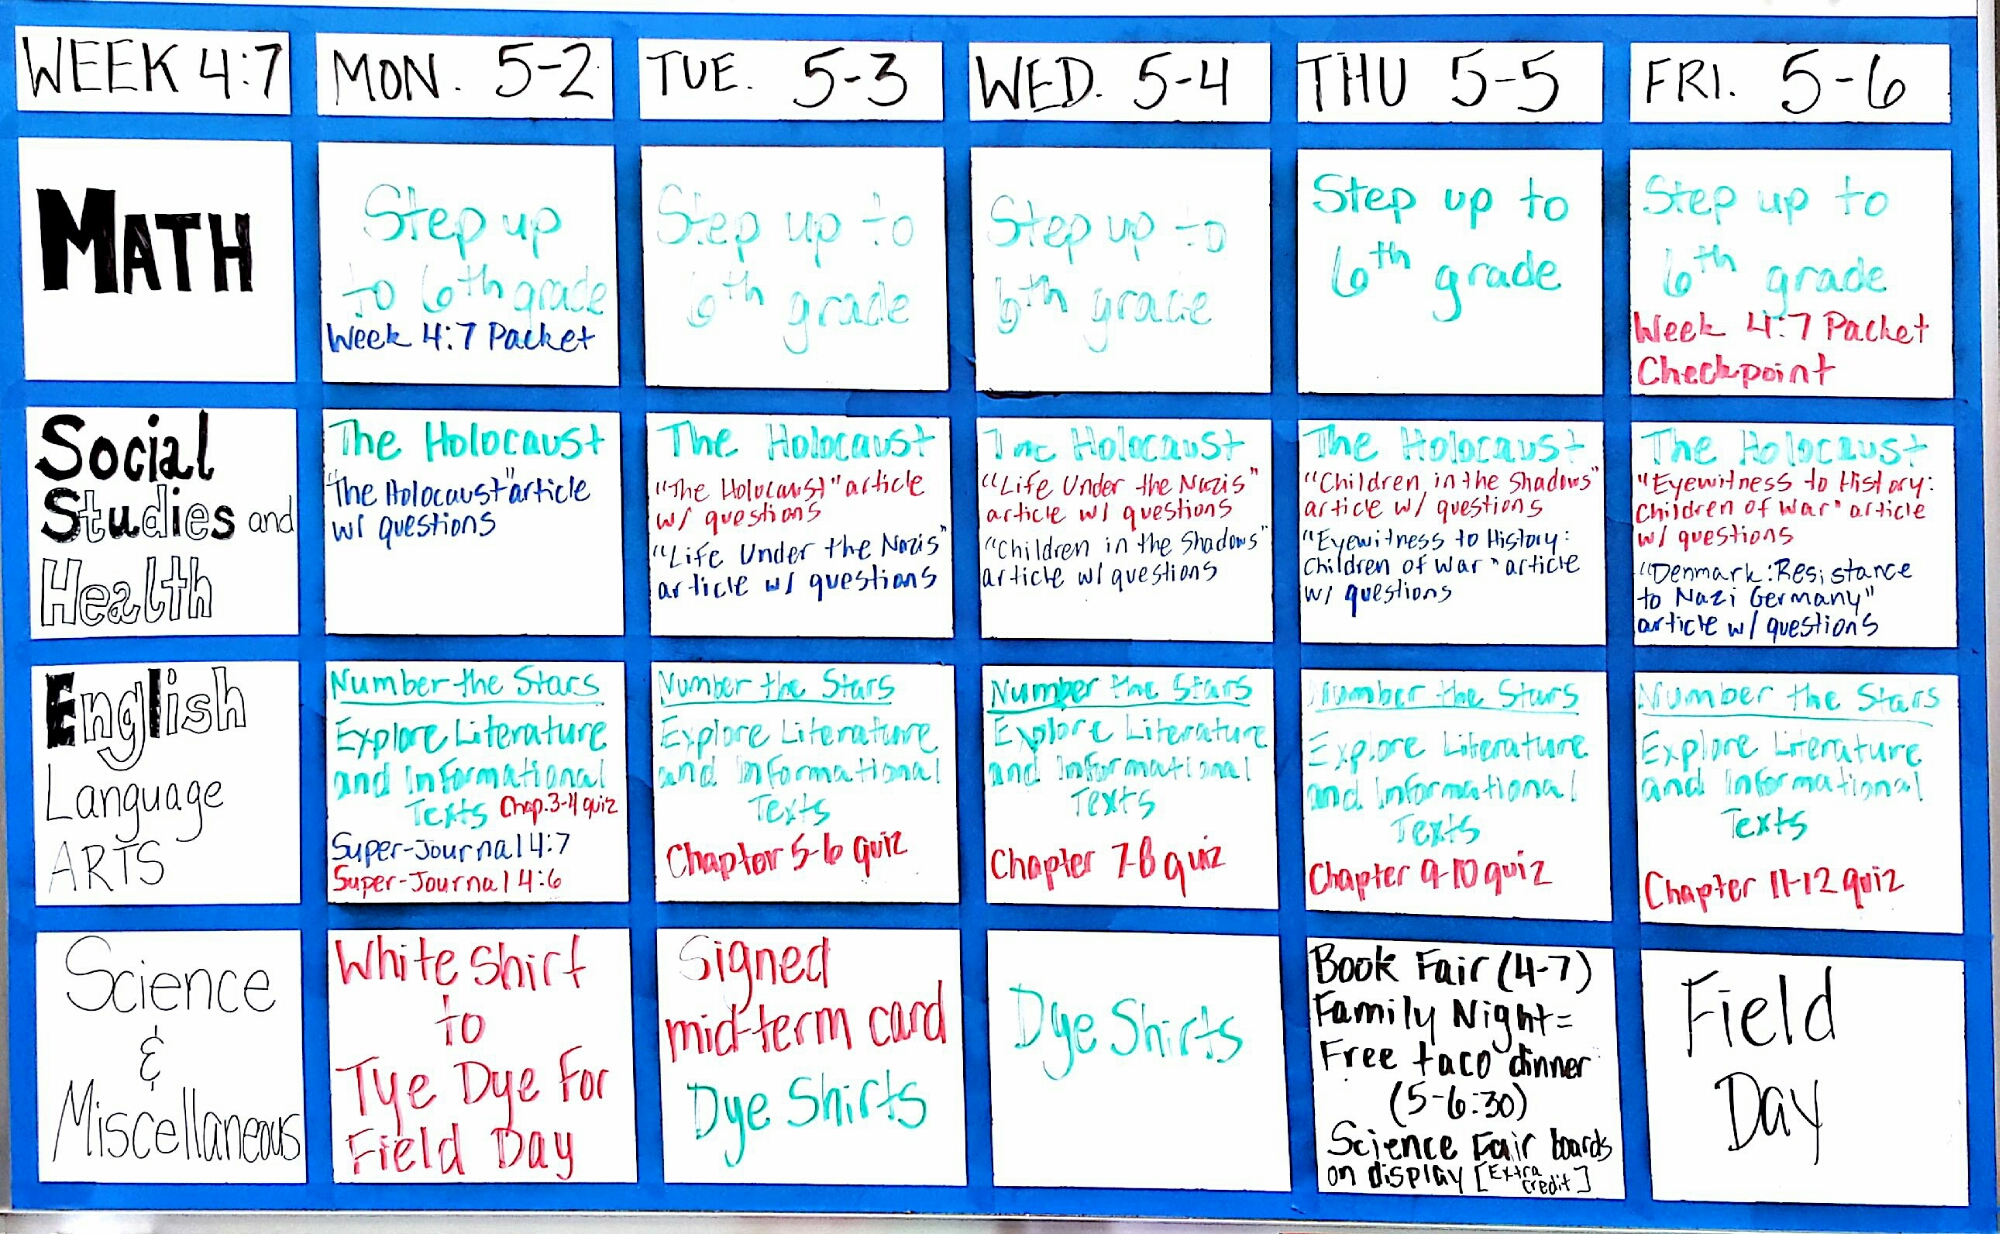 WEEK 4:7
MON. 5-2
TUE. 5-3
WED. 5-4
THU 5-5
FRI. 5-6
MATH
Step up
to 6th grade
Week 4:7 Packet
Step up to
6th grade
Step up to
6th grade
Step up to
6th grade
Step up to
6th grade
Week 4:7 Packet
Checkpoint
Social
Studies and
Health
The Holocaust
"The Holocaust" article
w/ questions
The Holocaust
"The Holocaust" article
w/ questions
"Life Under the Nazis"
article w/ questions
The Holocaust
"Life Under the Nazis"
article w/ questions
"Children in the Shadows"
article w/ questions
The Holocaust
"Children in the Shadows"
article w/ questions
"Eyewitness to History:
Children of War" article
w/ questions
The Holocaust
"Eyewitness to History:
Children of War" article
w/ questions
"Denmark: Resistance
to Nazi Germany"
article w/ questions
English
Language
ARTS
Number the Stars
Explore Literature
and Informational
Texts Chap. 3-4 quiz
Super-Journal 4:7
Super-Journal 4:6
Number the Stars
Explore Literature
and Informational
Texts
Chapter 5-6 quiz
Number the Stars
Explore Literature
and Informational
Texts
Chapter 7-8 quiz
Number the Stars
Explore Literature
and Informational
Texts
Chapter 9-10 quiz
Number the Stars
Explore Literature
and Informational
Texts
Chapter 11-12 quiz
Science
&
Miscellaneous
White Shirt
to
Tye Dye For
Field Day
Signed
mid-term card
Dye Shirts
Dye Shirts
Book Fair (4-7)
Family Night=
Free taco dinner
(5-6:30)
Science Fair boards
on display [Extra
credit]
Field
Day